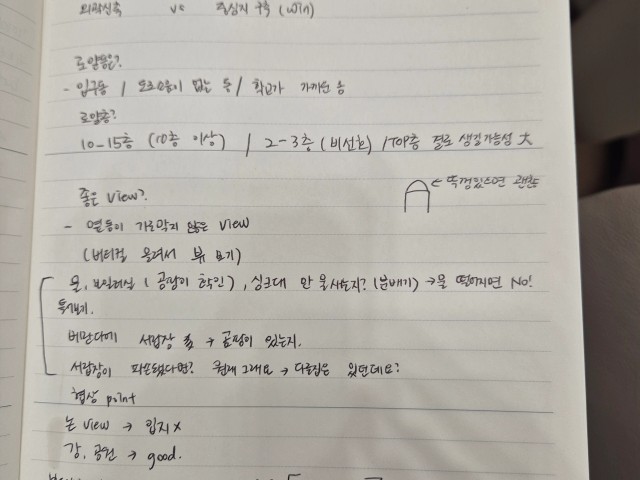 외곽신축 vs 중심지 구축 (win)
로얄동은?
- 입구동 / 도로소음이 없는 동 / 학교가 가까운 동
로얄층?
10-15층 (10층 이상) / 2-3층 (비선호) / TOP층 결로 생길가능성 大
← 뚜껑있으면 괜찮
좋은 view?
- 옆동이 가로막지 않은 view
(버티컬 올려서 뷰 보기)
물, 보일러실 (곰팡이 확인), 싱크대 안 물새는지? (분배기) → 물 떨어지면 No!
베란다에 서랍장 → 곰팡이 있는지.
서랍장이 파손됐다면? 원래 그래요 → 다른집은 있던데요?
협상 point
논 view → 입지 x
강, 공원 → good.